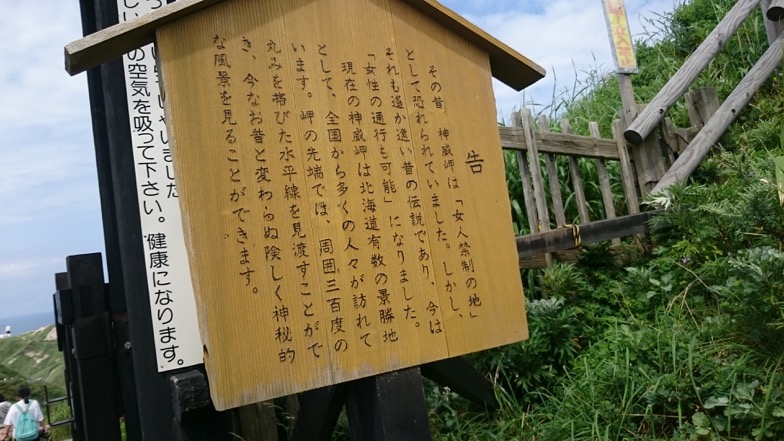 告
その昔、神威岬は「女人禁制の地」
として恐れられていました。しかし、
それも遥か遠い昔の伝説であり、今は
「女性の通行も可能」になりました。
現在の神威岬は北海道有数の景勝地
として、全国から多くの人々が訪れて
います。岬の先端では、周囲三百度の
丸みを帯びた水平線を見渡すことがで
き、今なお昔と変わらぬ険しく神秘的
な風景を見ることができます。
しゃいました
の空気を吸って下さい。健康になります。